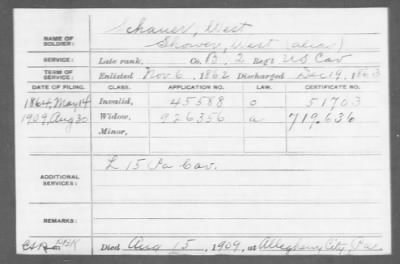 NAME OF SOLDIER: Schauer, West
Shower, West (alias)
SERVICE: Late rank, Co. B, 2 Regt US Cav
TERM OF SERVICE: Enlisted Nov 6, 1862 Discharged Dec 19, 1863
DATE OF FILING. CLASS. APPLICATION NO. LAW. CERTIFICATE NO.
1864, May 14 Invalid, 45588 o 51703
1909, Aug 30 Widow, 926356 a 719.636
Minor,
ADDITIONAL SERVICES: L 15 Pa Cav.
REMARKS:
Died Aug 15, 1909, at Allegheny City, Pa